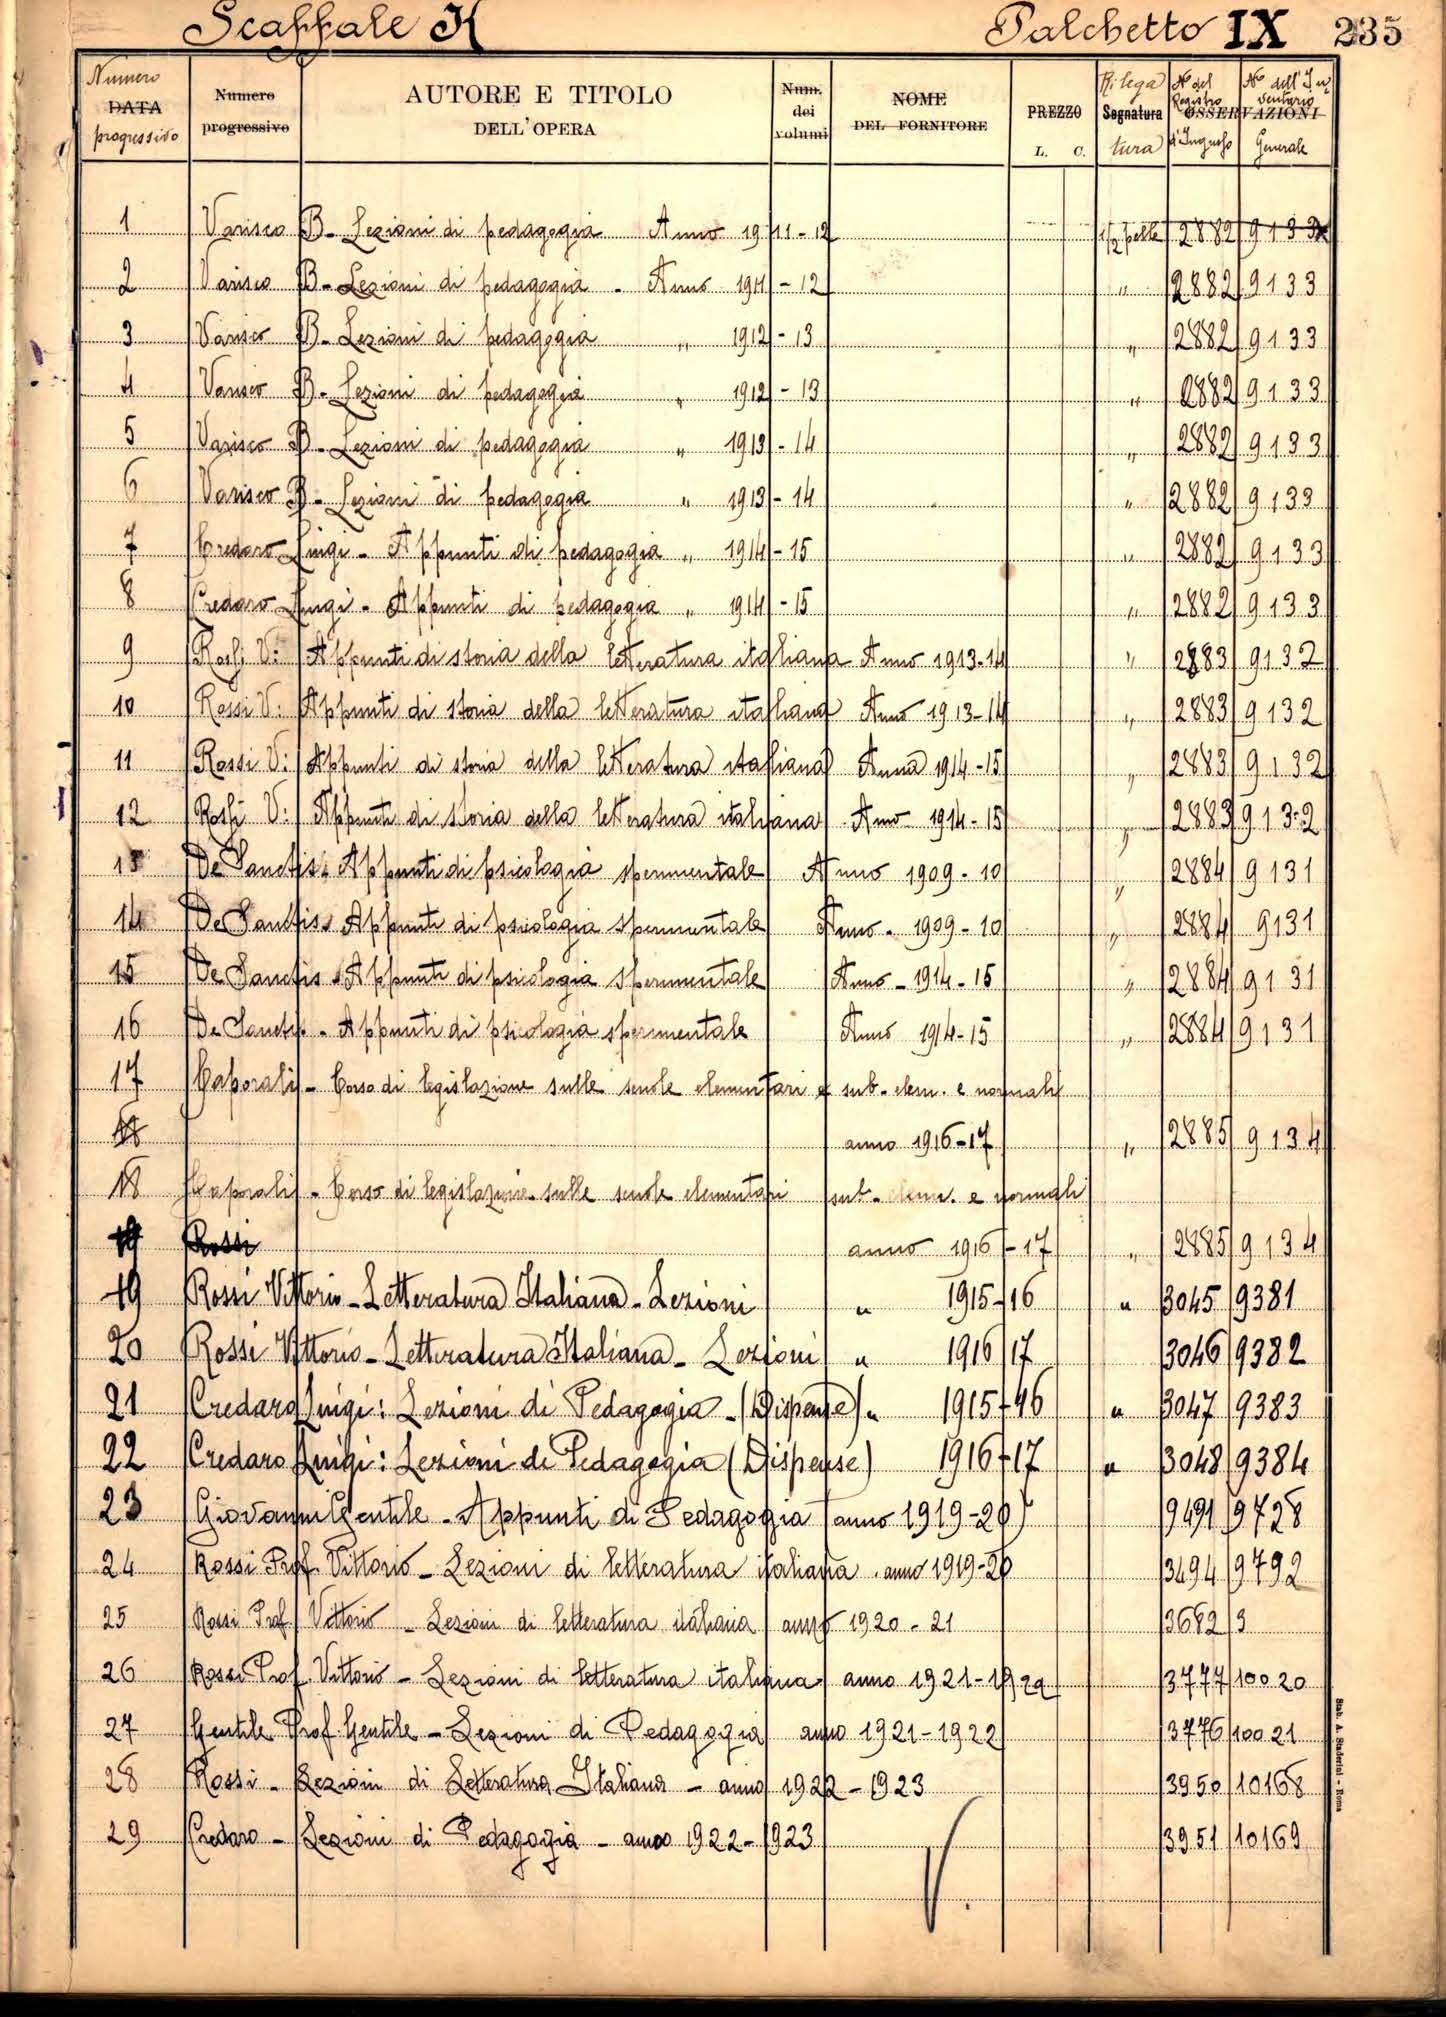 Scaffale K Palchetto IX 235
Numero DATA progressivo
Numero progressivo
AUTORE E TITOLO DELL'OPERA
Num. dei volumi
NOME DEL FORNITORE
PREZZO L. C.
Rilega Segnatura tura
N° del Registro d'Ingresso
OSSERVAZIONI
N° dell'Inventario Generale
1 Varisco B- Lezioni di pedagogia Anno 1911-12 1/2 pelle 2882 9133
2 Varisco B- Lezioni di pedagogia - Anno 1911-12 " 2882 9133
3 Varisco B- Lezioni di pedagogia " 1912-13 " 2882 9133
4 Varisco B- Lezioni di pedagogia " 1912-13 " 2882 9133
5 Varisco B- Lezioni di pedagogia " 1913-14 " 2882 9133
6 Varisco B- Lezioni di pedagogia " 1913-14 " 2882 9133
7 Credaro Luigi - Appunti di pedagogia " 1914-15 " 2882 9133
8 Credaro Luigi - Appunti di pedagogia " 1914-15 " 2882 9133
9 Rossi V: Appunti di storia della letteratura italiana Anno 1913-14 " 2883 9132
10 Rossi V: Appunti di storia della letteratura italiana Anno 1913-14 " 2883 9132
11 Rossi V: Appunti di storia della letteratura italiana Anno 1914-15 " 2883 9132
12 Rossi V: Appunti di storia della letteratura italiana Anno 1914-15 " 2883 9132
13 De Sanctis - Appunti di psicologia sperimentale Anno 1909-10 " 2884 9131
14 De Sanctis - Appunti di psicologia sperimentale Anno - 1909-10 " 2884 9131
15 De Sanctis - Appunti di psicologia sperimentale Anno - 1914-15 " 2884 9131
16 De Sanctis - Appunti di psicologia sperimentale Anno 1914-15 " 2884 9131
17 Caporali - Corso di legislazione sulle scuole elementari e sub-elem. e normali
18 anno 1916-17 " 2885 9134
18 Caporali - Corso di legislazione sulle scuole elementari sub-elem. e normali
19 Rossi anno 1916-17 " 2885 9134
19 Rossi Vittorio - Letteratura Italiana - Lezioni " 1915-16 " 3045 9381
20 Rossi Vittorio - Letteratura Italiana - Lezioni " 1916 17 3046 9382
21 Credaro Luigi: Lezioni di Pedagogia - (Dispense) " 1915-16 " 3047 9383
22 Credaro Luigi: Lezioni di Pedagogia (Dispense) 1916-17 " 3048 9384
23 Giovanni Gentile - Appunti di Pedagogia (anno 1919-20) 9491 9728
24 Rossi Prof. Vittorio - Lezioni di letteratura italiana . anno 1919-20 3494 9792
25 Rossi Prof Vittorio - Lezioni di letteratura italiana anno 1920-21 3682 3
26 Rossi Prof. Vittorio - Lezioni di letteratura italiana anno 1921-1922 3777 10020
27 Gentile Prof. Gentile - Lezioni di Pedagogia anno 1921-1922 3776 10021
28 Rossi - Lezioni di Letteratura Italiana - anno 1922-1923 3950 10168
29 Credaro - Lezioni di Pedagogia - anno 1922-1923 3951 10169
V.
Stab. A. Staderini - Roma